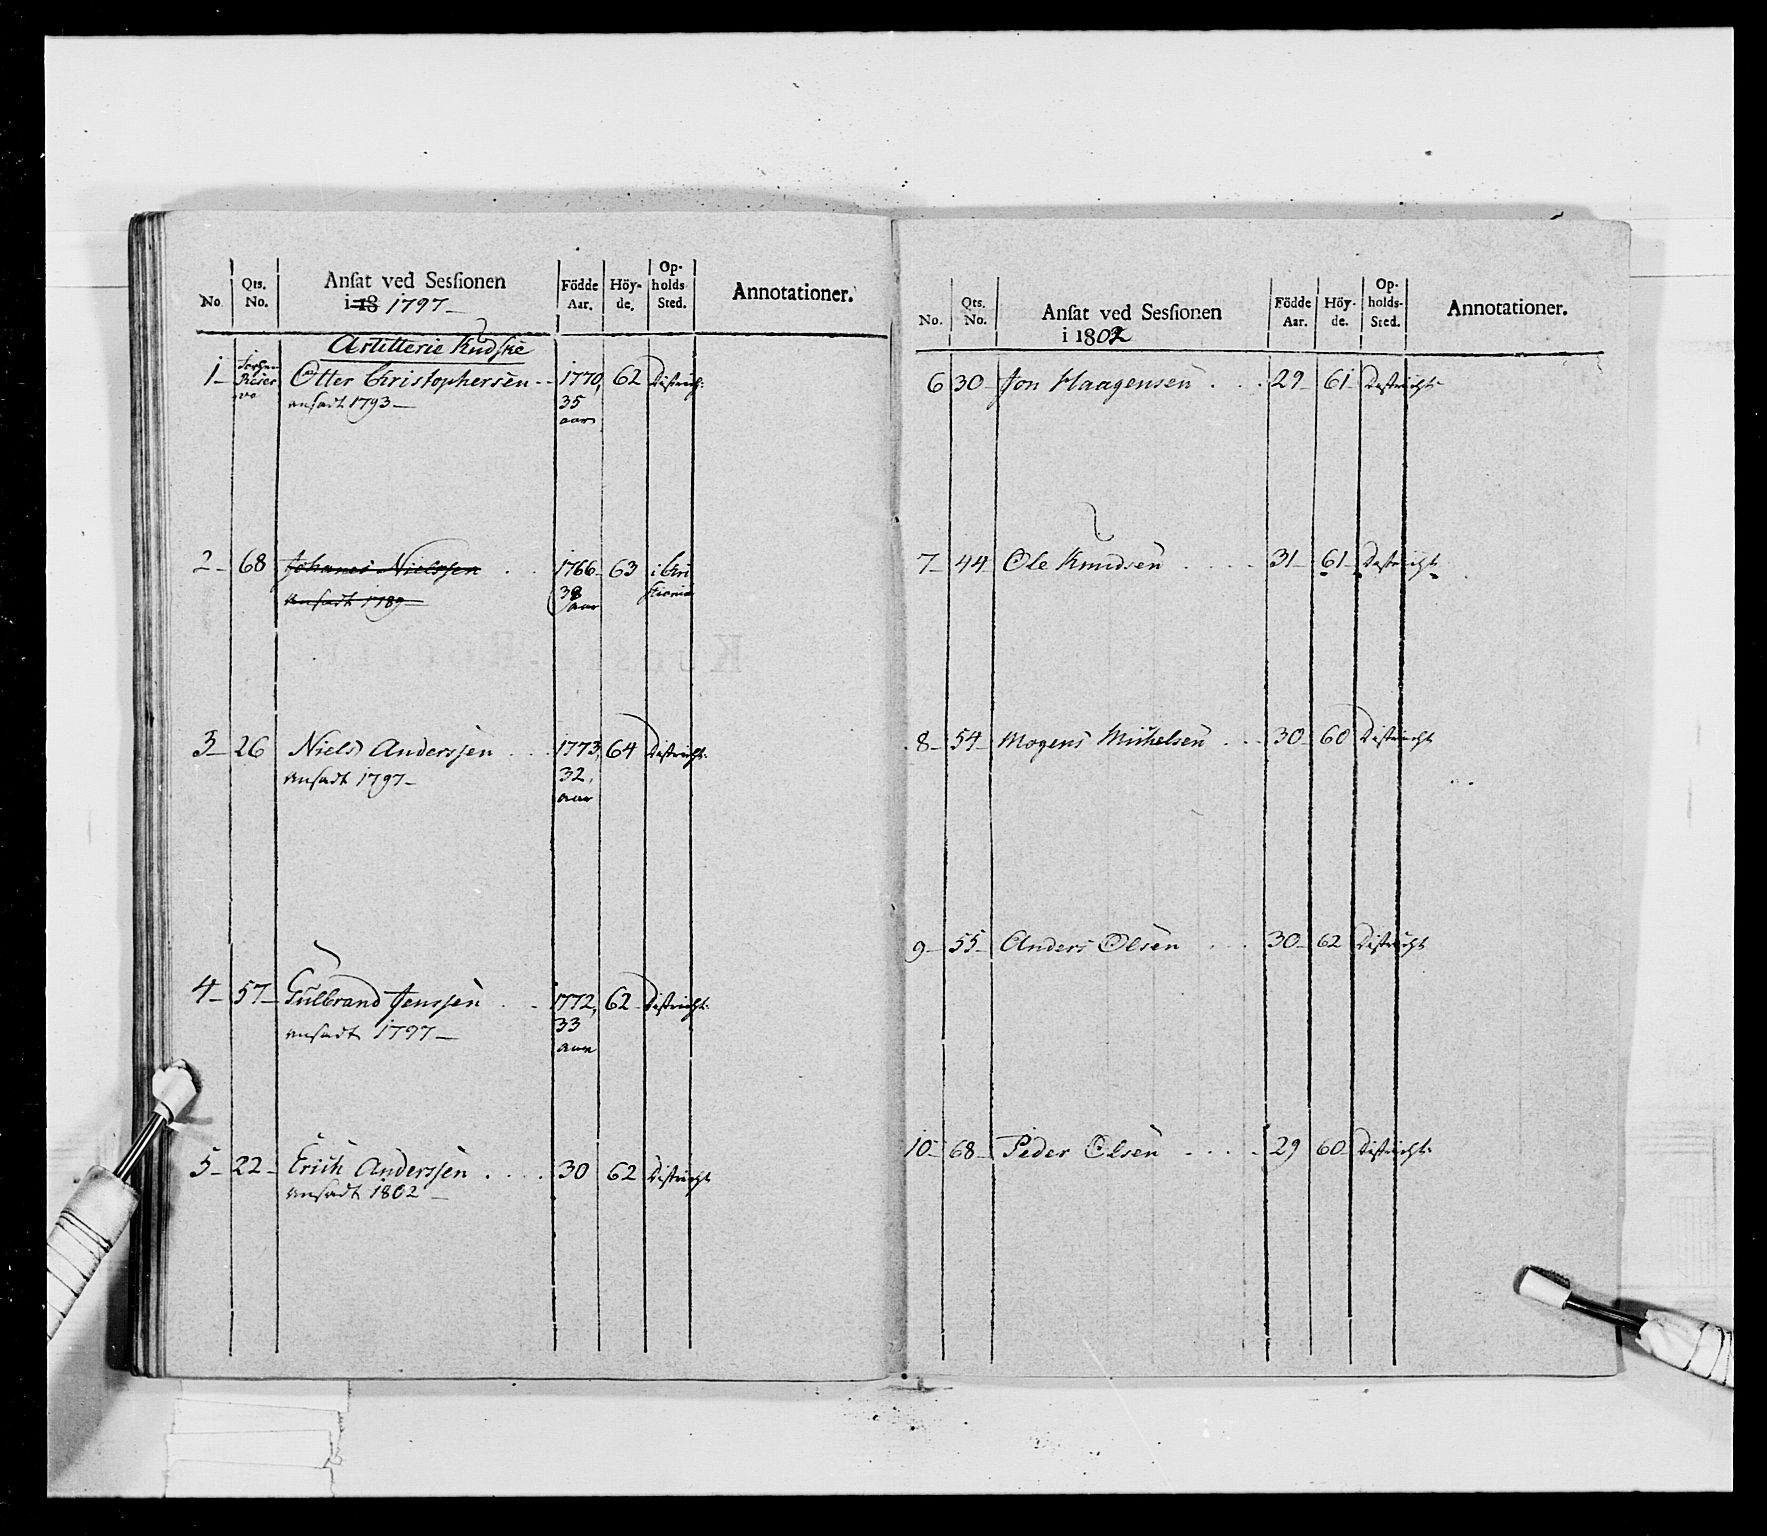 No. Qts. No. Ansat ved Sessionen i 18 1797 – Födde Aar. Höyde. Opholds Sted. Annotationer.
Artillerie Kudske
1 – Reserve Otter Christophersen - - 1770, 62 District:
ansadt 1793 – 35
aar
2 – 68 Johanes Nielssen . . 1766 – 63 i Chri
ansadt 1789 – 38 stiania
aar
3 – 26 Niels Anderssen . . . 1773, 64 District:
ansadt 1797 – 32,
aar
4 – 57 – Gulbrand Jenssen . . 1772, 62 – District:
ansadt 1797 – 33
aar
5 – 22 – Erich Anderssen . . . . 30 62 District
ansadt 1802 –
No. Qts. No. Ansat ved Sessionen i 1802 Födde Aar. Höyde. Opholds-Sted. Annotationer.
6 30 – Jon Haagensen . . . 29 – 61 – District –
7 – 44 – Ole Knudsen . . . . 31 61 – District
8 – 54 – Mogens Michelsen . . . 30 – 60 District
9 – 55 – Anders Olsen . . . 30 – 62 District
10 – 68 – Peder Olsen . . . . 29 60 – District: